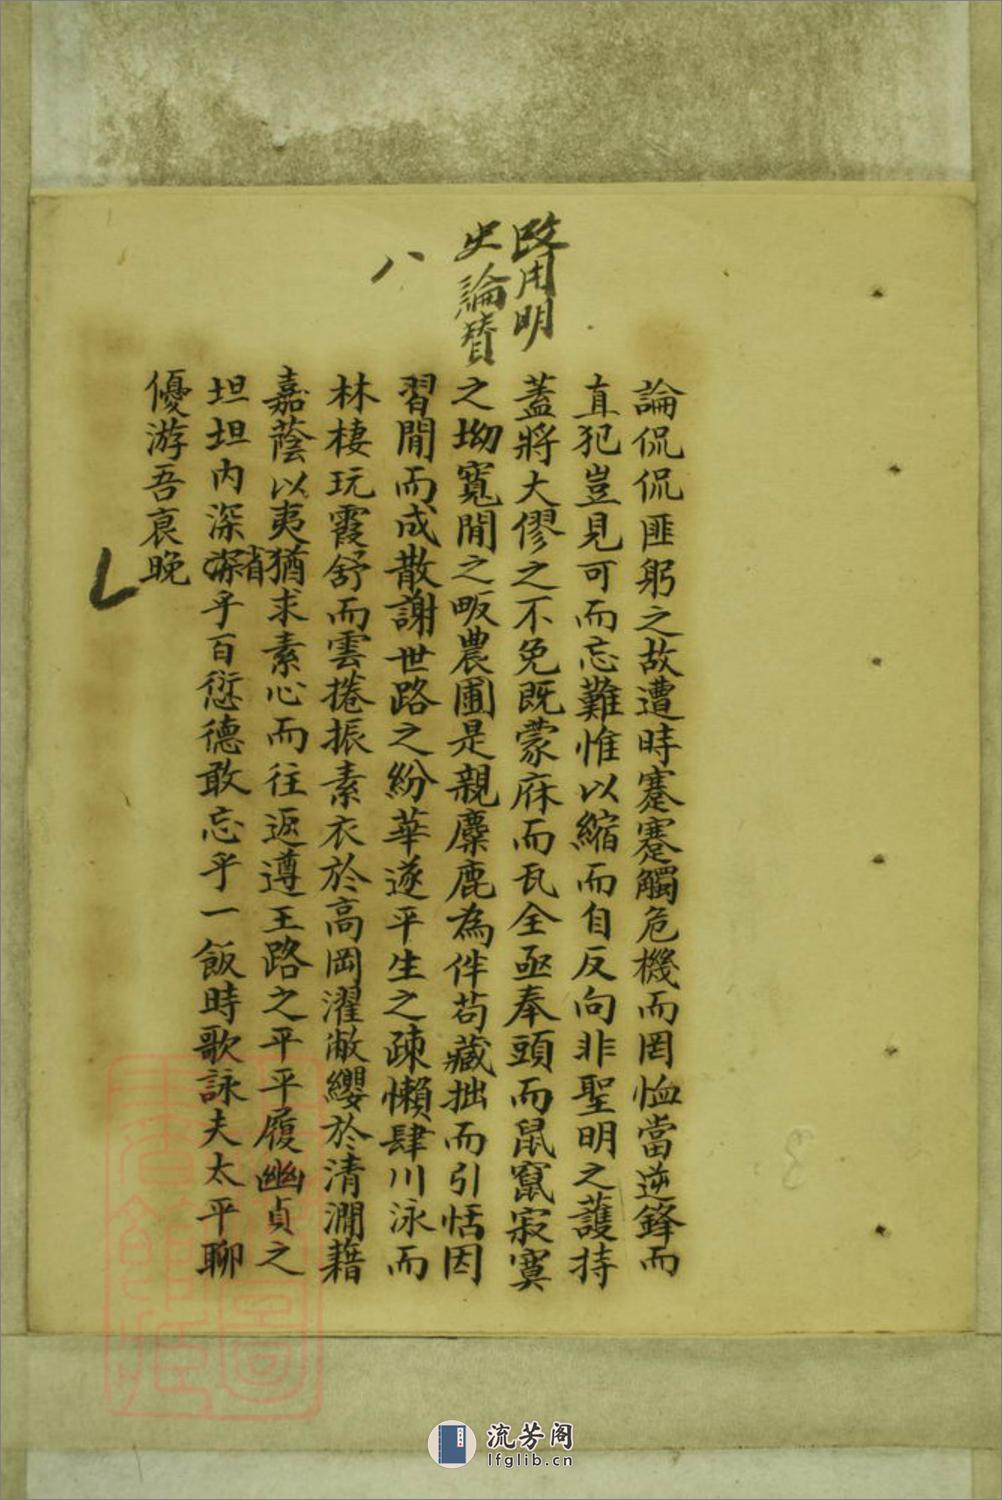 改用明
史論賛
八
論侃侃匪躬之故遭時蹇蹇觸危機而罔恤當逆鋒而
直犯豈見可而忘難惟以縮而自反向非聖明之護持
蓋將大僇之不免既蒙庥而瓦全亟奉頭而鼠竄寂寞
之坳寬閒之畈農圃是親麋鹿為伴苟藏拙而引恬因
習閒而成散謝世路之紛華遂平生之疎懶肆川泳而
林棲玩霞舒而雲捲振素衣於高岡濯敝纓於清澗藉
嘉蔭以夷猶求素心而往返遵王路之平平履幽貞之
坦坦內深省乎百愆德敢忘乎一飯時歌詠夫太平聊
優游吾哀晚
流芳阁
lfglib.cn